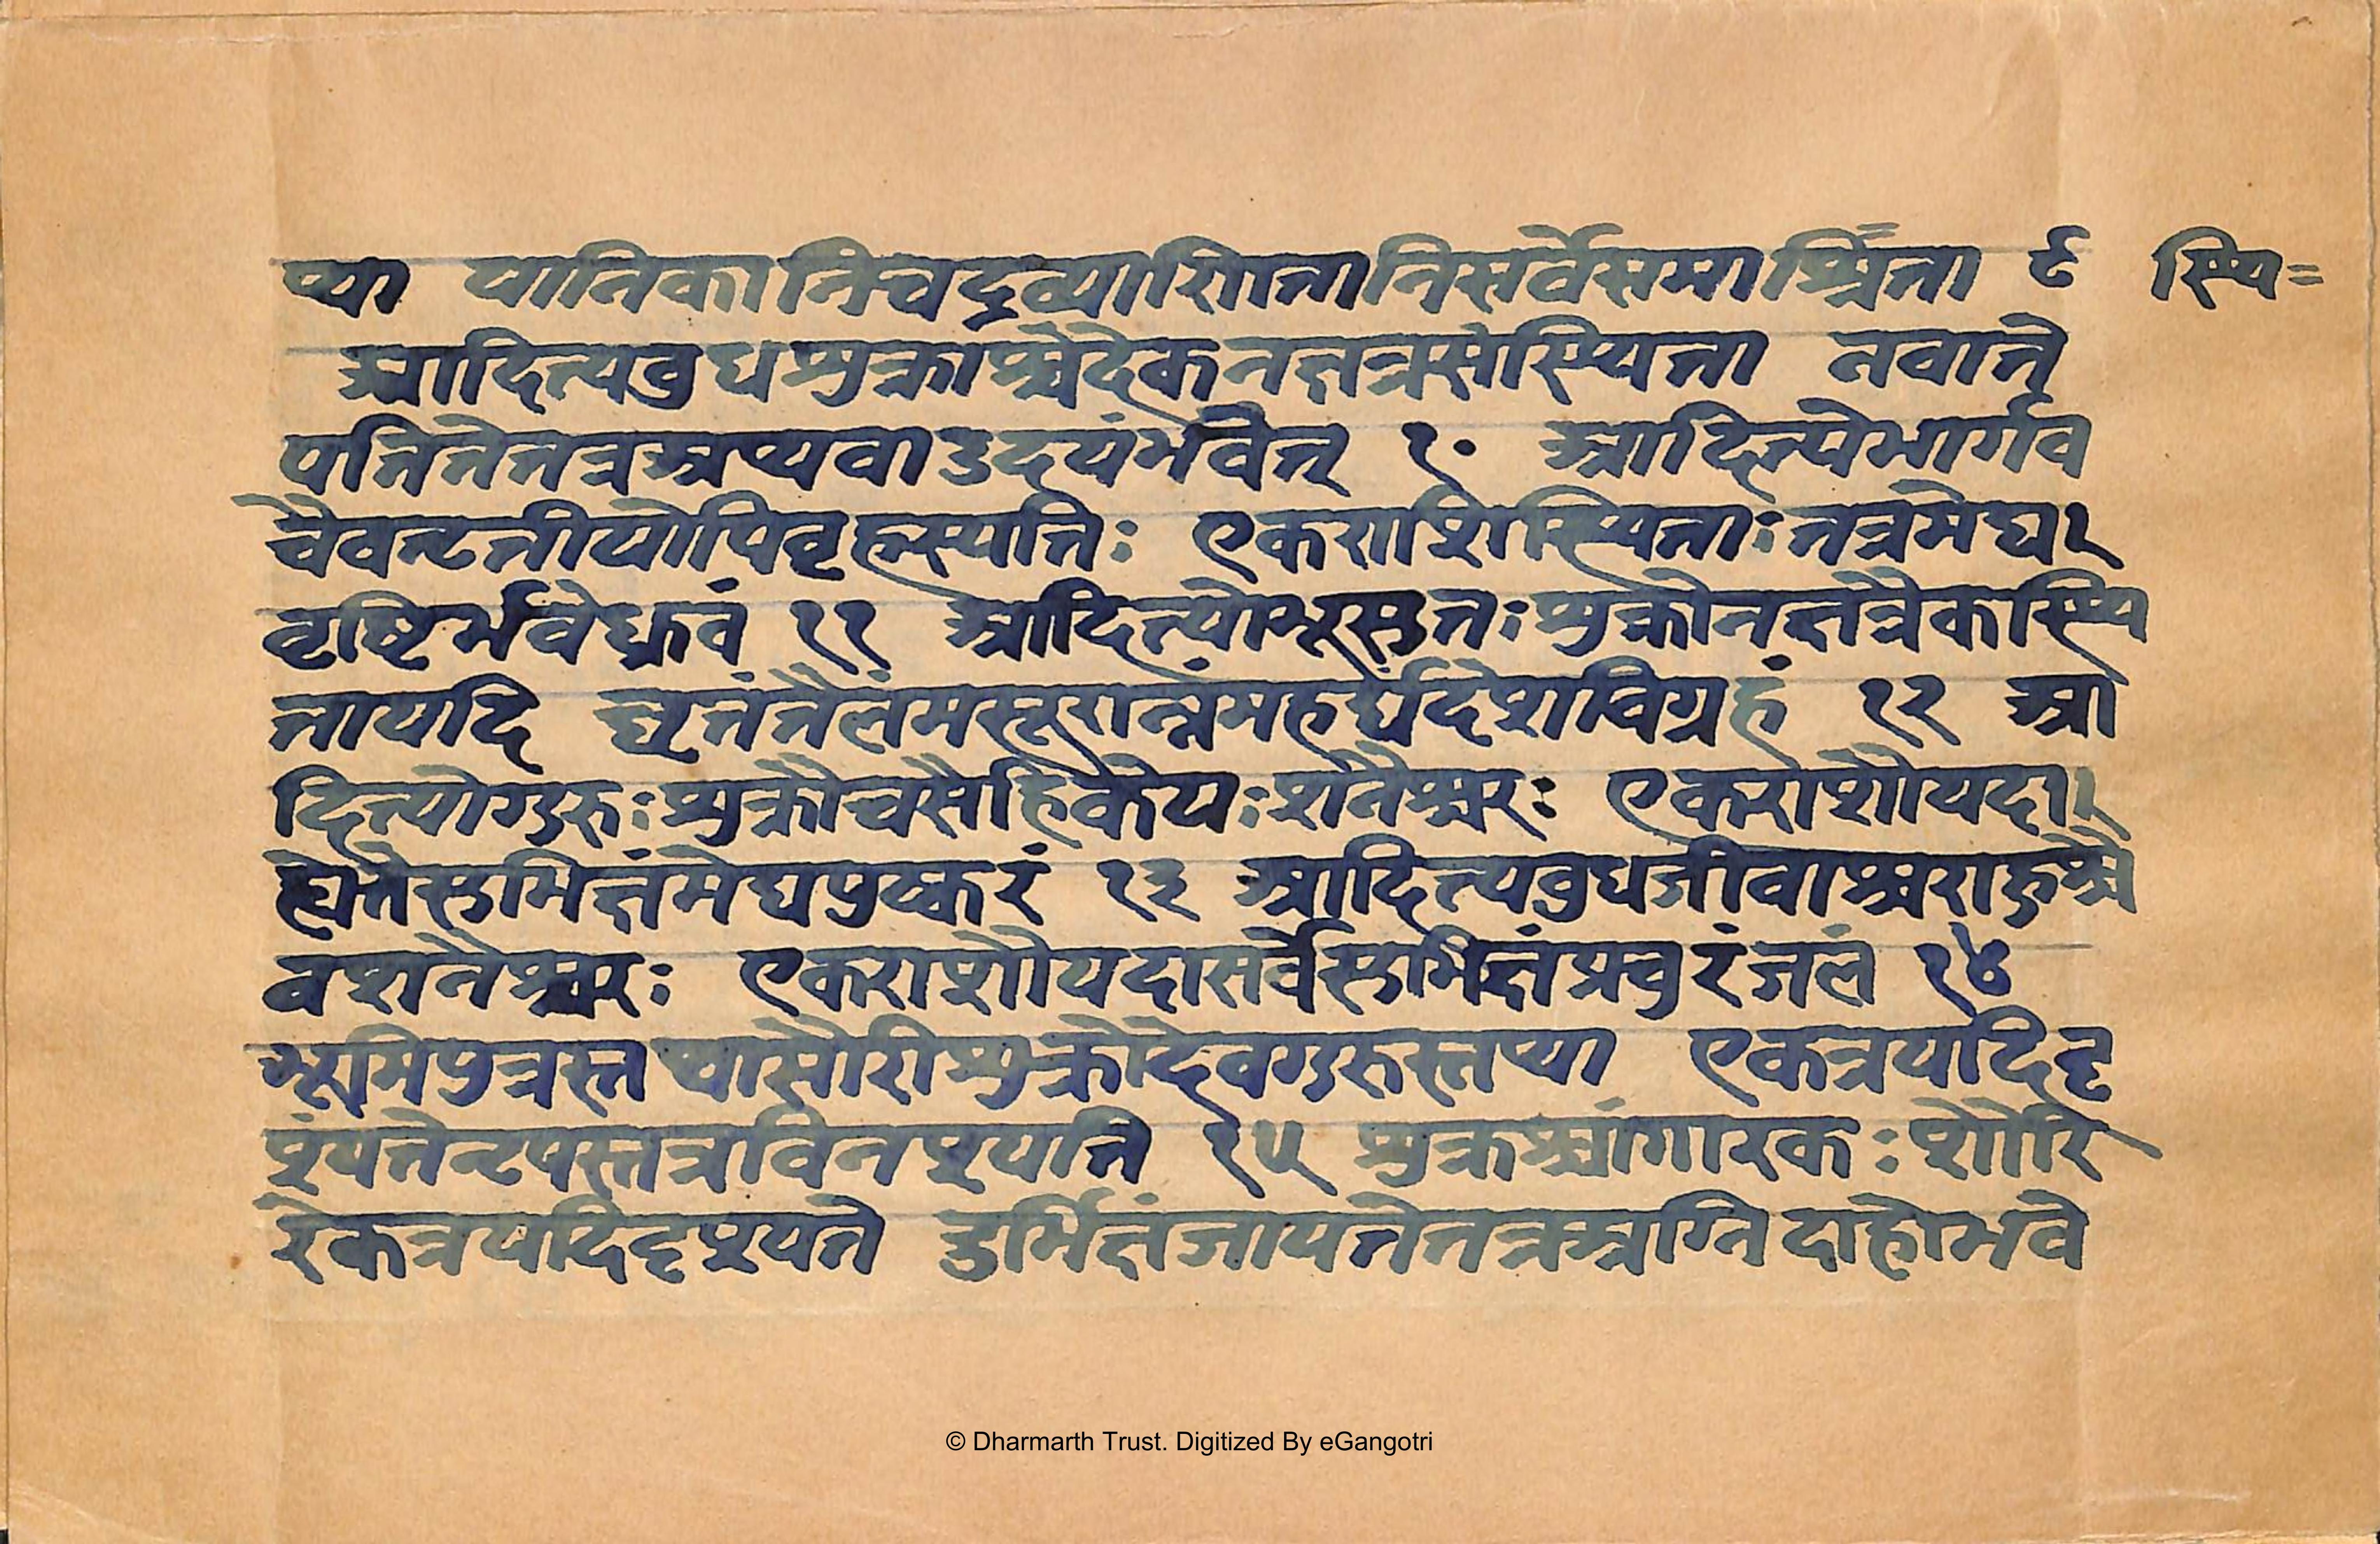 था यानिकानिचद्रव्याणितानिसर्वेसमाश्रिता ९ स्थि=
आदित्यबुधशुक्राश्चेदेकनक्षत्रसंस्थिता नवान्ते
पतितेतत्रअथवाउदयंभवेत् १० आदित्येभार्गव
चैवतृतीयोपिबृहस्पतिः एकराशिस्थिताःतत्रमेघा
वृष्टिर्भवेध्रुवं ११ आदित्योभूसुतःशुक्रोनक्षत्रैकास्थि
तायदि घृतंतैलंमसूरान्नंमहर्घंदेशविग्रहं १२ आ
दित्योगुरुःशुक्रौचसैहिकेयःशनैश्चरः एकराशौयदा
ह्येतेसुभिक्षंमेघपुष्करं १३ आदित्यबुधजीवाश्चराहुश्चै
वशनैश्चरः एकराशौयदासर्वेसुभिक्षंप्रचुरंजलं १४
भूमिपुत्रस्तथासौरीशुक्रोदेवगुरुस्तथा एकत्रयदिदृ
श्यंयतेनृपस्तत्रविनश्यति १५ शुक्रश्चांगारकःशौरि
रेकत्रयदिदृश्यते दुर्भिक्षंजायतेतत्रअग्निदाहोभवे
© Dharmarth Trust. Digitized By eGangotri